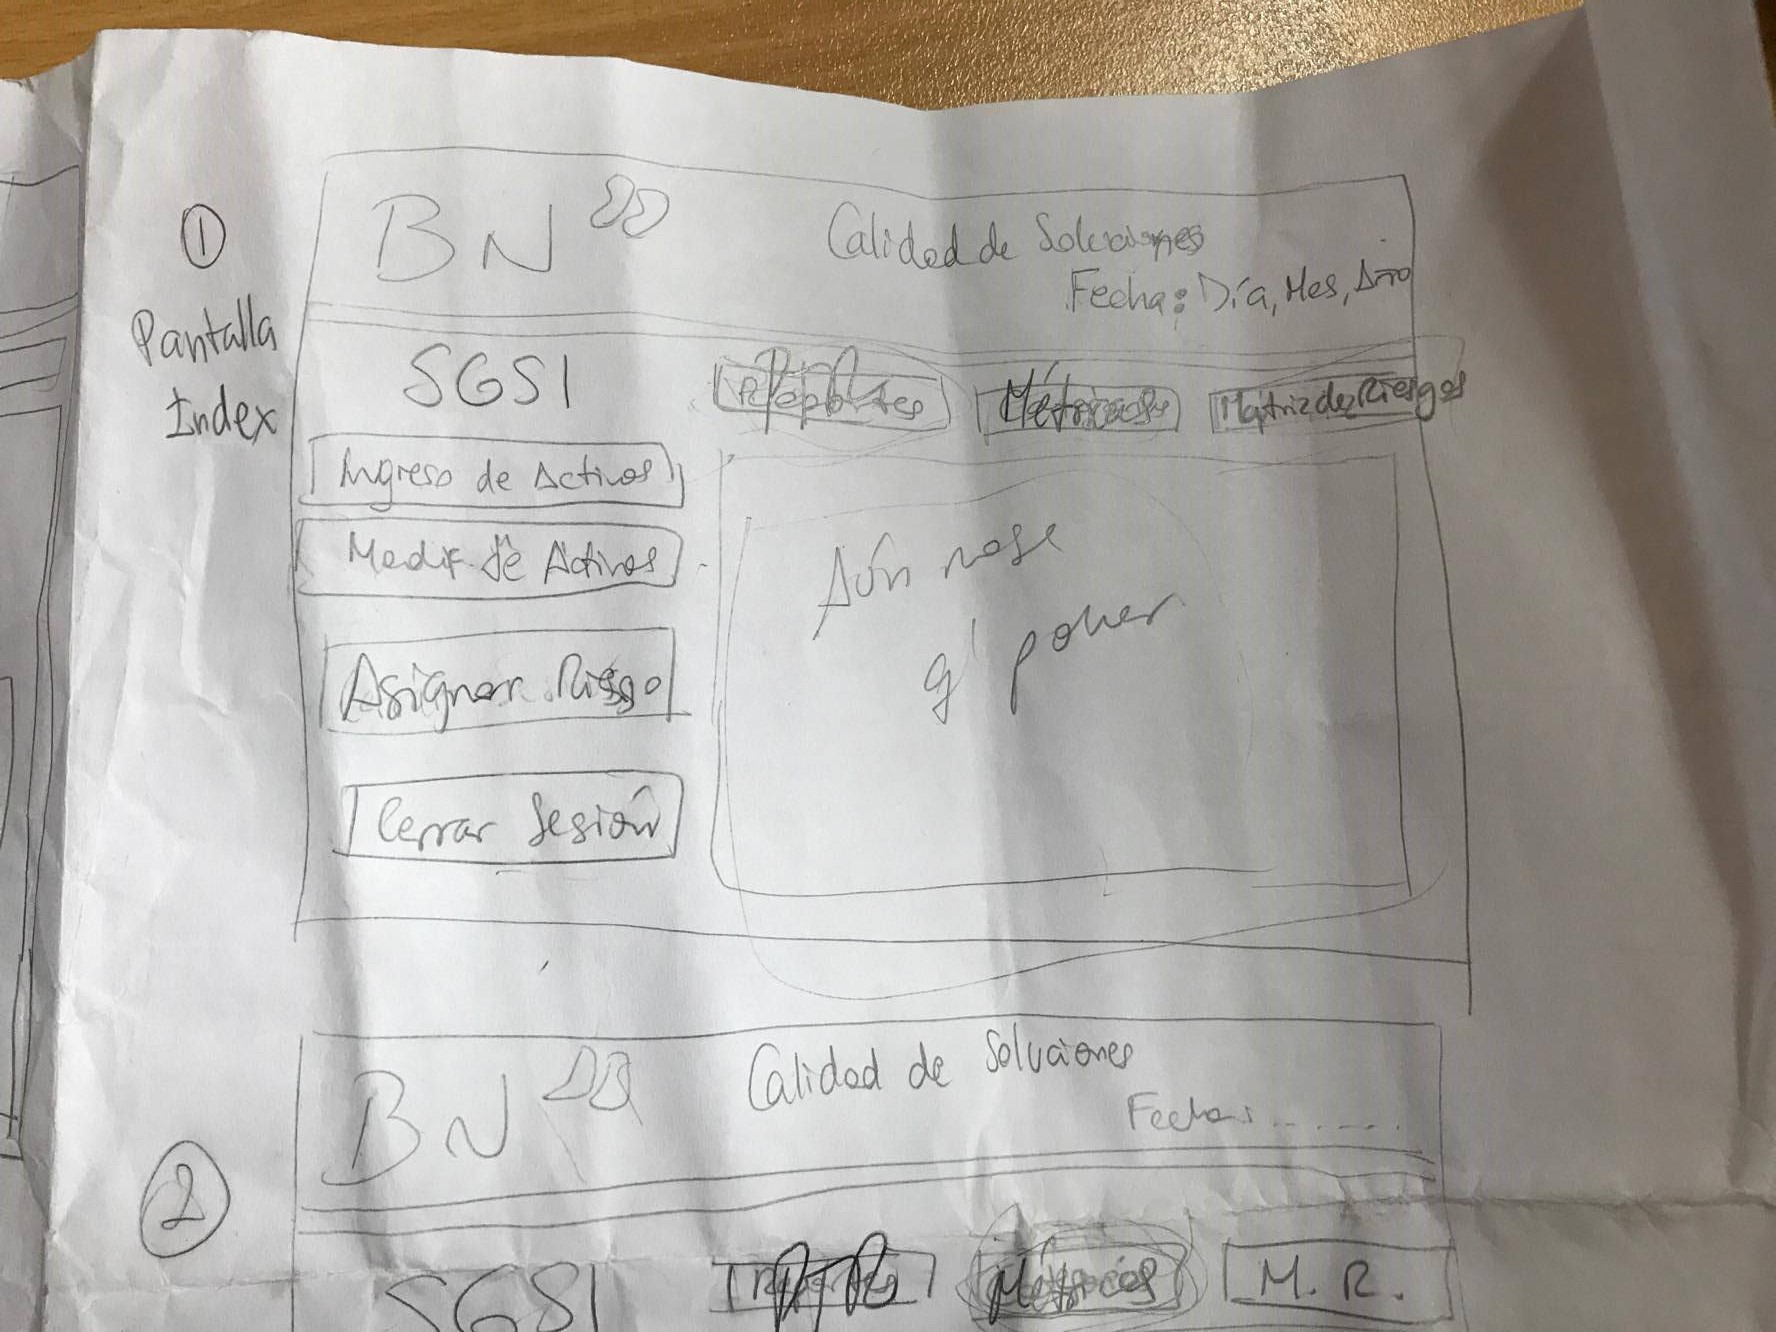 1
Pantalla
Index
BN
Calidad de Soluciones
Fecha: Día, Mes, Año
SGSI
Reportes
Métricas
Matriz de Riesgos
Ingreso de Activos
Modif. de Activos
Asignar Riesgo
Cerrar Sesión
Aún nose
q' poner
2
BN
Calidad de Soluciones
Fecha: .......
SGSI
Métricas
M. R.